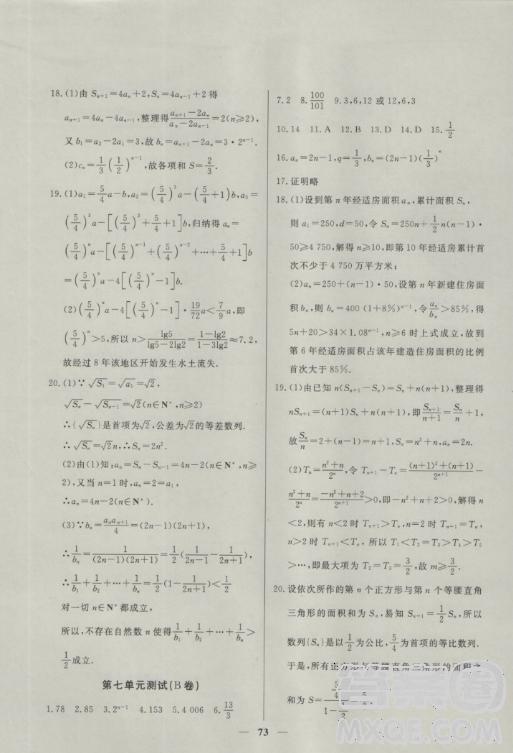 18.(1)由 Sₙ₊₁=4aₙ+2,Sₙ=4aₙ₋₁+2得
aₙ₊₁=4aₙ-4aₙ₋₁,整理得(aₙ₊₁-2aₙ)/(aₙ-2aₙ₋₁)=2(n≥2),
又 b₁=a₂-2a₁=3,故 bₙ=aₙ₊₁-2aₙ=3·2ⁿ⁻¹.
(2)cₙ=1/3(1/2)ⁿ⁻¹,故各项和 S=2/3.
19.(1)a₁=5/4a-b,a₂=(5/4)²a-(5/4+1)b,a₃=
(5/4)³a-[(5/4)²+(5/4)+1]b,归纳得 aₙ=
(5/4)ⁿa-[(5/4)ⁿ⁻¹+(5/4)ⁿ⁻²+…+5/4+1]b
=(5/4)ⁿa-4[(5/4)ⁿ-1]b.
(2)(5/4)ⁿa-4[(5/4)ⁿ-1]·19/72a<7/9a,即
(5/4)ⁿ>5,所以 n>lg5/(lg5-2lg2)=(1-lg2)/(1-3lg2)≈7.2,
故经过 8 年该地区开始发生水土流失.
20.(1)∵√S₁=√a₁=√2,
√Sₙ-√Sₙ₋₁=√2(n∈N*,n≥2)
∴{√Sₙ}是首项为√2,公差为√2的等差数列.
∴√Sₙ=√2n,∴Sₙ=2n².
(2)由(1)知:aₙ=Sₙ-Sₙ₋₁=4n-2(n∈N*,n≥
2),又当 n=1时,a₁=2=a₁,
∴aₙ=4n-2(n∈N*).
(3)∵bₙ=aₙaₙ₊₁/4=(2n-1)(2n+1)(n∈N*),
∴1/bₙ=1/((2n-1)(2n+1))=1/2(1/(2n-1)-1/(2n+1))
∴1/b₁+1/b₂+…+1/bₙ=1/2(1-1/(2n+1))<1/2
对一切 n∈N*都成立,
所以,不存在自然数 n 使得1/b₁+1/b₂+…+1/bₙ≥
1/2成立.
第七单元测试(B卷)
1.78 2.85 3.2ⁿ⁻¹ 4.153 5.4 006 6.13/3
7.2 8.100/101 9.3,6,12 或 12,6,3
10.14 11.A 12.B 13.D 14.D 15.1/2
16.aₙ=2n-1,q=1/3,bₙ=(2n-1)(1/3)ⁿ
17.证明略
18.(1)设到第 n 年经适房面积 aₙ,累计面积 Sₙ,
则 a₁=250,d=50,令 Sₙ=250n+1/2n(n-1)·
50≥4 750,解得 n≥10,即第 10 年经适房累计首
次不少于 4 750 万平方米;
(2)aₙ=250+(n-1)·50,设第 n 年新建住房面
积 bₙ,则 bₙ=400(1+8%)ⁿ⁻¹.令aₙ/bₙ>85%,得
5n+20>34×1.08ⁿ⁻¹,n≥6 时上式成立,故到
第 6 年经适房面积占该年建造住房面积的比例
首次大于 85%.
19.(1)由已知 n(Sₙ₊₁-Sₙ)=Sₙ+n(n+1),整理得
nSₙ₊₁=(n+1)Sₙ+n(n+1),即Sₙ₊₁/(n+1)=Sₙ/n+1,
故{Sₙ/n}是等差数列.
(2)Tₙ=(n²+n)/2ⁿ,令 Tₙ₊₁-Tₙ=((n+1)²+(n+1))/2ⁿ⁺¹-
(n²+n)/2ⁿ=(-n²+n+2)/2ⁿ⁺¹>0,即-n²+n+2>0,解得
n<2,则有 n<2 时 Tₙ₊₁>Tₙ,n=2 时 Tₙ₊₁=Tₙ,
n>2 时 Tₙ₊₁<Tₙ,所以 T₁<T₂=T₃>T₄>T₅
>…,即最大项为 T₂=T₃=3/2,故 m≥3/2.
20.设依次所作的第 n 个正方形与第 n 个等腰直角
三角形的面积和为 Sₙ,易知 Sₙ₊₁=1/2Sₙ,所以
数列{Sₙ}是以1/2为公比,5/4为首项的等比数列.
故所有正方形与等腰直角三角形的面积之
73